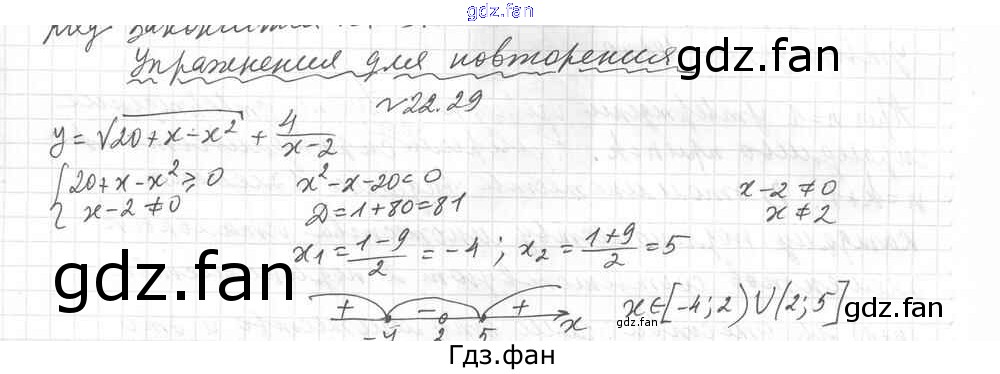 gdz.fan
Упражнения для повторения
gdz.fan
№22.29
y = √20+x-x² + 4/(x-2)
{20+x-x² ≥ 0
x-2 ≠ 0
x²-x-20 < 0
D = 1+80 = 81
x-2 ≠ 0
x ≠ 2
x₁ = (1-9)/2 = -4 ; x₂ = (1+9)/2 = 5
gdz.fan
+ - +
-4 2 5 x
x∈[-4; 2) ∪ (2; 5]
gdz.fan
gdz.fan
Гдз.фан